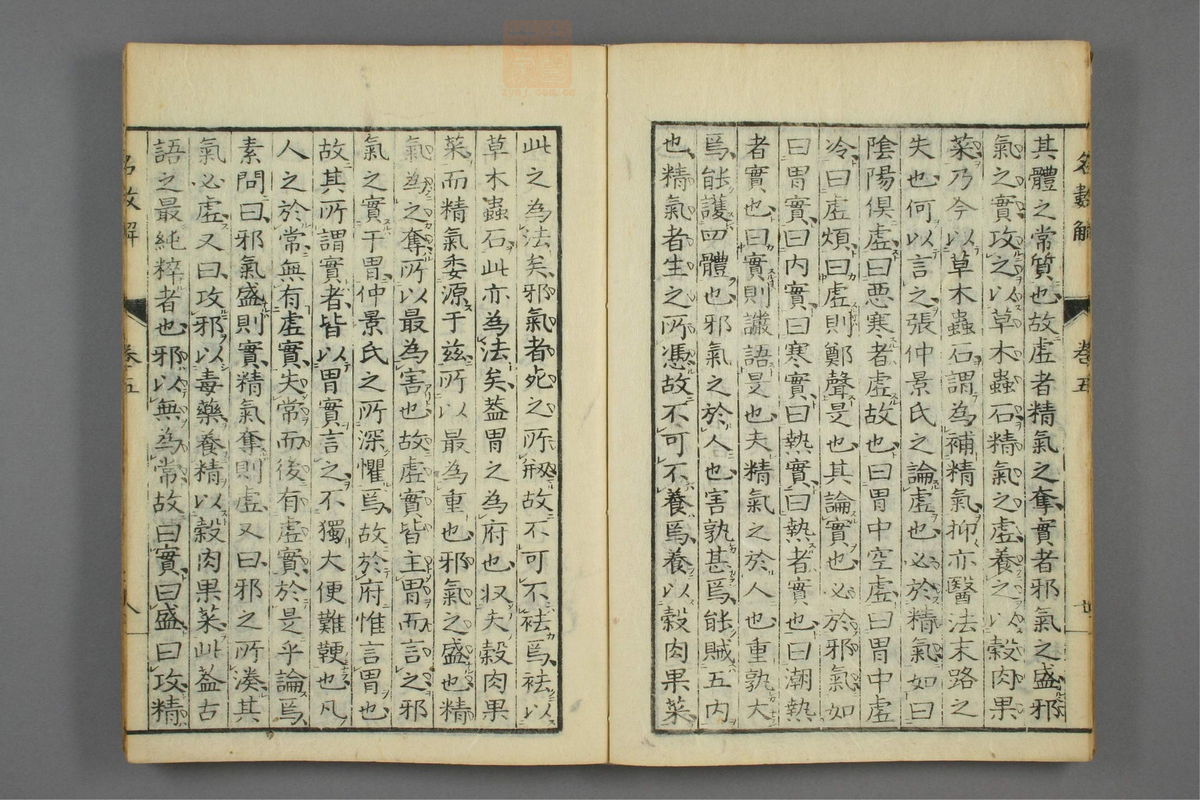 名數解 卷五
其體之常質也故虛者精氣之奪實者邪氣之盛邪
氣之實攻之以草木蟲石精氣之虛養之以穀肉果
菜乃今以草木蟲石謂為補精氣抑亦醫法末路之
失也何以言之張仲景氏之論虛也必於精氣如曰
陰陽俱虛曰惡寒者虛故也曰胃中空虛曰胃中虛
冷曰虛煩曰虛則鄭聲是也其論實也必於邪氣如
曰胃實曰內實曰寒實曰熱實曰熱者實也曰潮熱
者實也曰實則讝語是也夫精氣之於人也重孰大
焉能護四體也邪氣之於人也害孰甚焉能賊五內
也精氣者生之所憑故不可不養焉養以穀肉果菜
此之為法矣邪氣者死之所故不可不祛焉祛以
草木蟲石此亦為法矣蓋胃之為府也収夫穀肉果
菜而精氣委源于兹所以最為重也邪氣之盛也精
氣為之奪所以最為害也故虛實皆主胃而言之邪
氣之實干胃仲景氏之所深懼焉故於府惟言胃也
故其所謂實者皆以胃實言之不獨大便難鞕也凡
人之於常無有虛實失常而後有虛實於是乎論焉
素問曰邪氣盛則實精氣奪則虛又曰邪之所湊其
氣必虛又曰攻邪以毒藥養精以穀肉果菜此蓋古
語之最純粹者也邪以無為常故曰實曰盛曰攻精
名數解 卷五